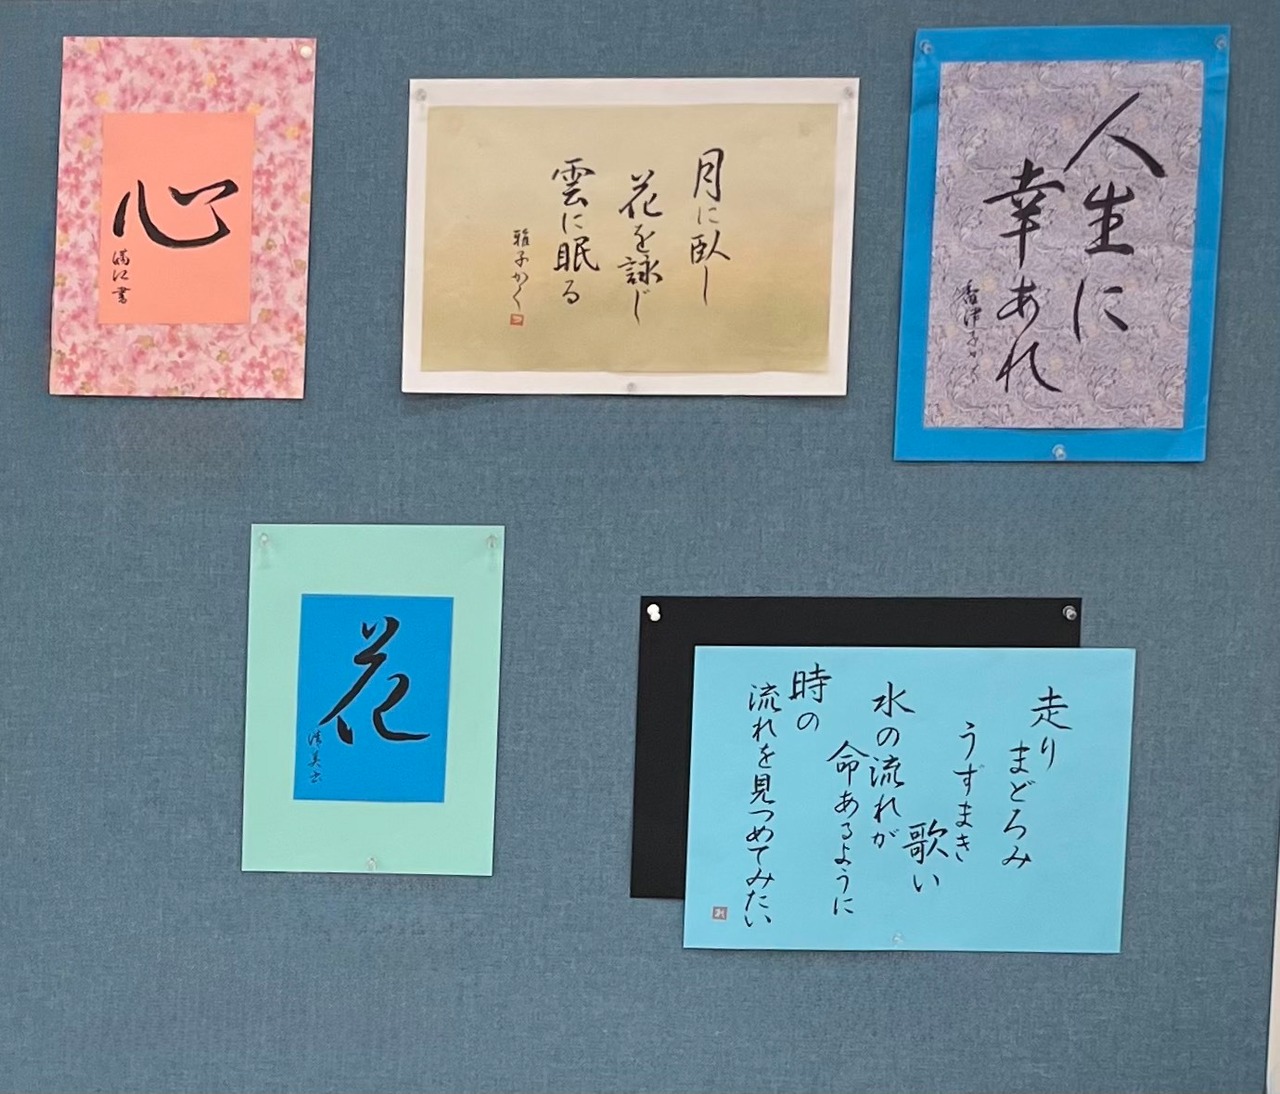 心
満江書
月に臥し
花を詠じ
雲に眠る
雅子かく
人生に
幸あれ
花
清美書
走り
まどろみ
うずまき
歌い
水の流れが
命あるように
時の
流れを見つめてみたい